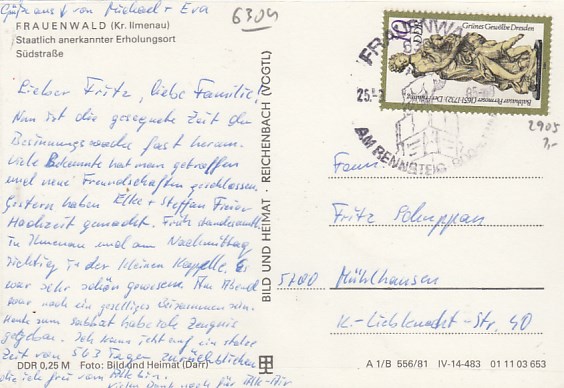 Grüße aus F von Michael + Eva
FRAUENWALD (Kr. Ilmenau)
Staatlich anerkannter Erholungsort
Südstraße
6304
Lieber Fritz, liebe Familie,
Nun ist die gesegnete Zeit der
Besinnungswoche fast herum.
Viele Bekannte hat man getroffen
und neue Freundschaften geschlossen.
Gestern haben Elke + Steffen
Hochzeit gemacht. Früh standesamtl.
in Ilmenau und am Nachmittag
richtig in der kleinen Kapelle. Es
war sehr schön gewesen. Am Abend
war noch ein geselliges Beisammen sein.
Heute zum Sabbat habe ich Zeugnis
gegeben. Ich kann jetzt auf ein stolze
Zeit von 563 Tagen zurückblicken
die ich frei vom Alk bin.
Vielen Dank noch für
DDR 0,25 M Foto: Bild und Heimat (Darr)
BILD UND HEIMAT · REICHENBACH (VOGTL)
FRAUENWALD
25.
AM RENNSTEIG
10
DDR
Grünes Gewölbe Dresden
Balthasar Permoser (1651-1732): Der Frühling
2905
Fam.
Fritz Schuppan
5700 Mühlhausen
K.-Liebknecht-Str. 40
A 1/B 556/81 IV-14-483 01 11 03 653